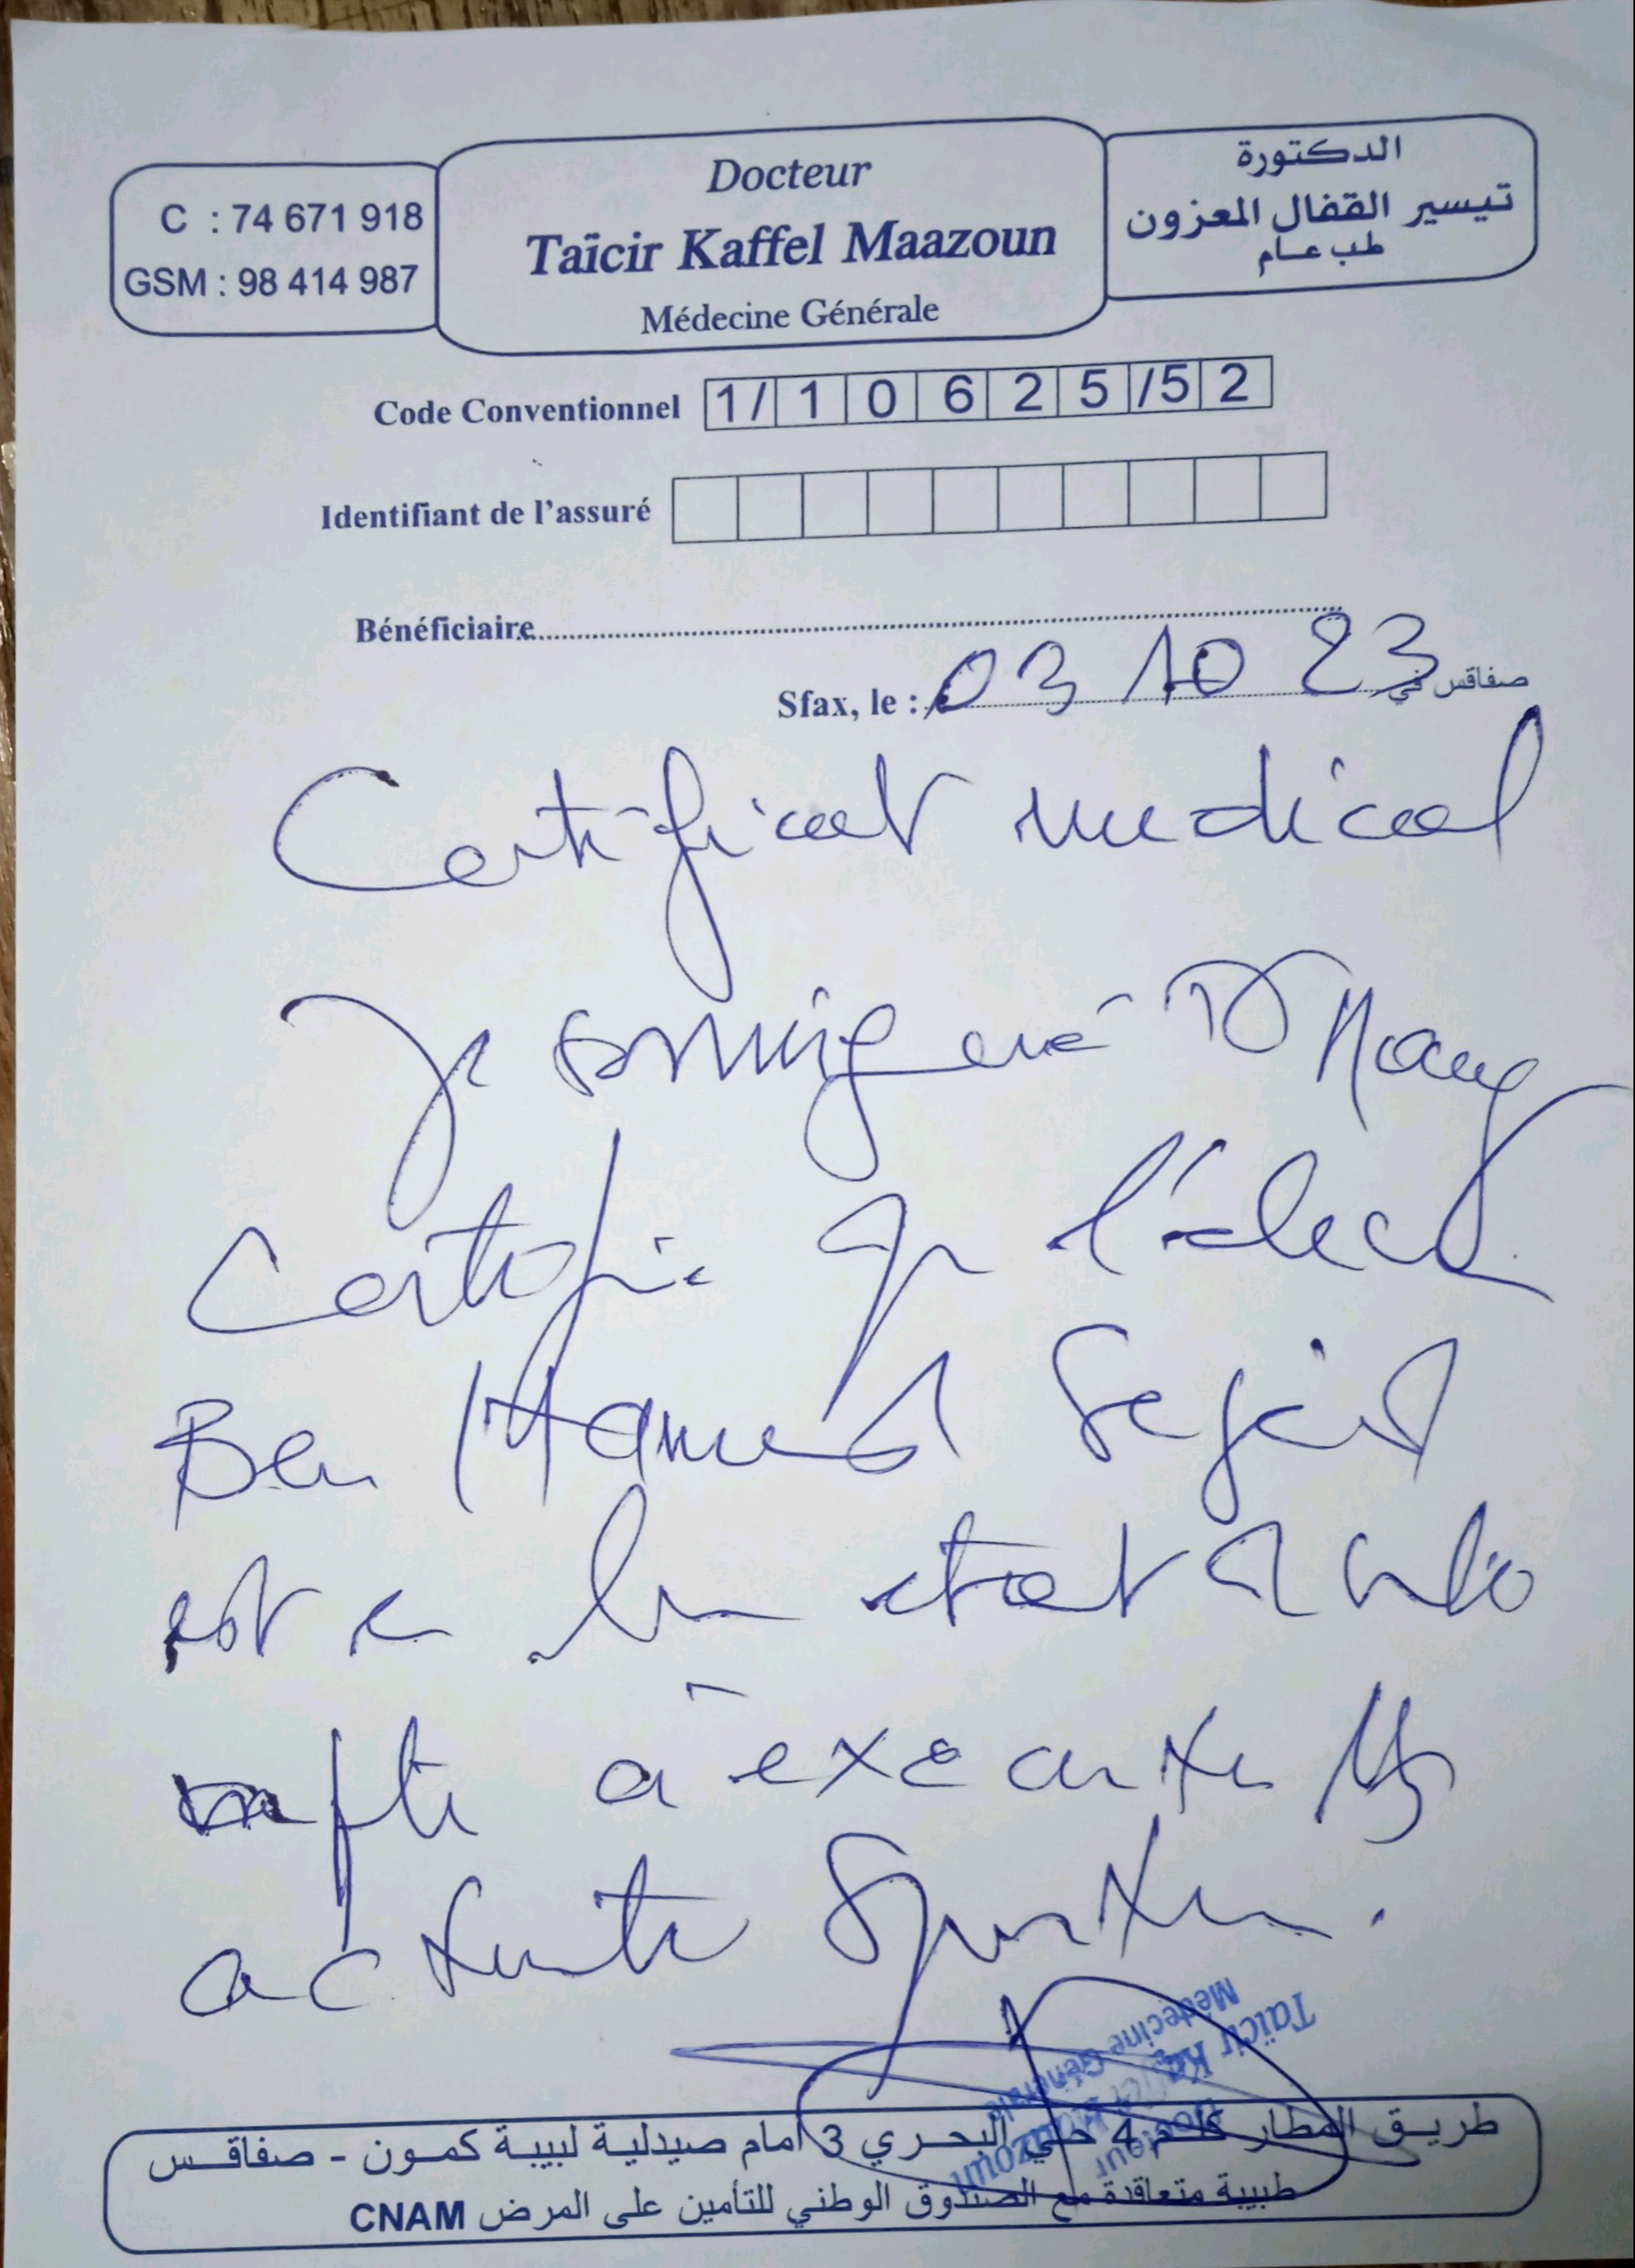 C : 74 671 918
GSM : 98 414 987
Docteur
Taïcir Kaffel Maazoun
Médecine Générale
الدكتورة
تيسير القفال المعزون
طب عام
Code Conventionnel 1/ 1 0 6 2 5 /5 2
Identifiant de l'assuré
Bénéficiaire
Sfax, le : 03 10 23 صفاقس في
Certificat medical
Je soussigné Dr
Certifie que l'élève
Ben Hamed
est en bon etat
apte à executer
activité sportive.
Docteur
Taïcir Kaffel Maazoun
Médecine Générale
طريق المطار كلم 4 حي البحري 3 أمام صيدلية لبيبة كمون - صفاقس
طبيبة متعاقدة مع الصندوق الوطني للتأمين على المرض CNAM